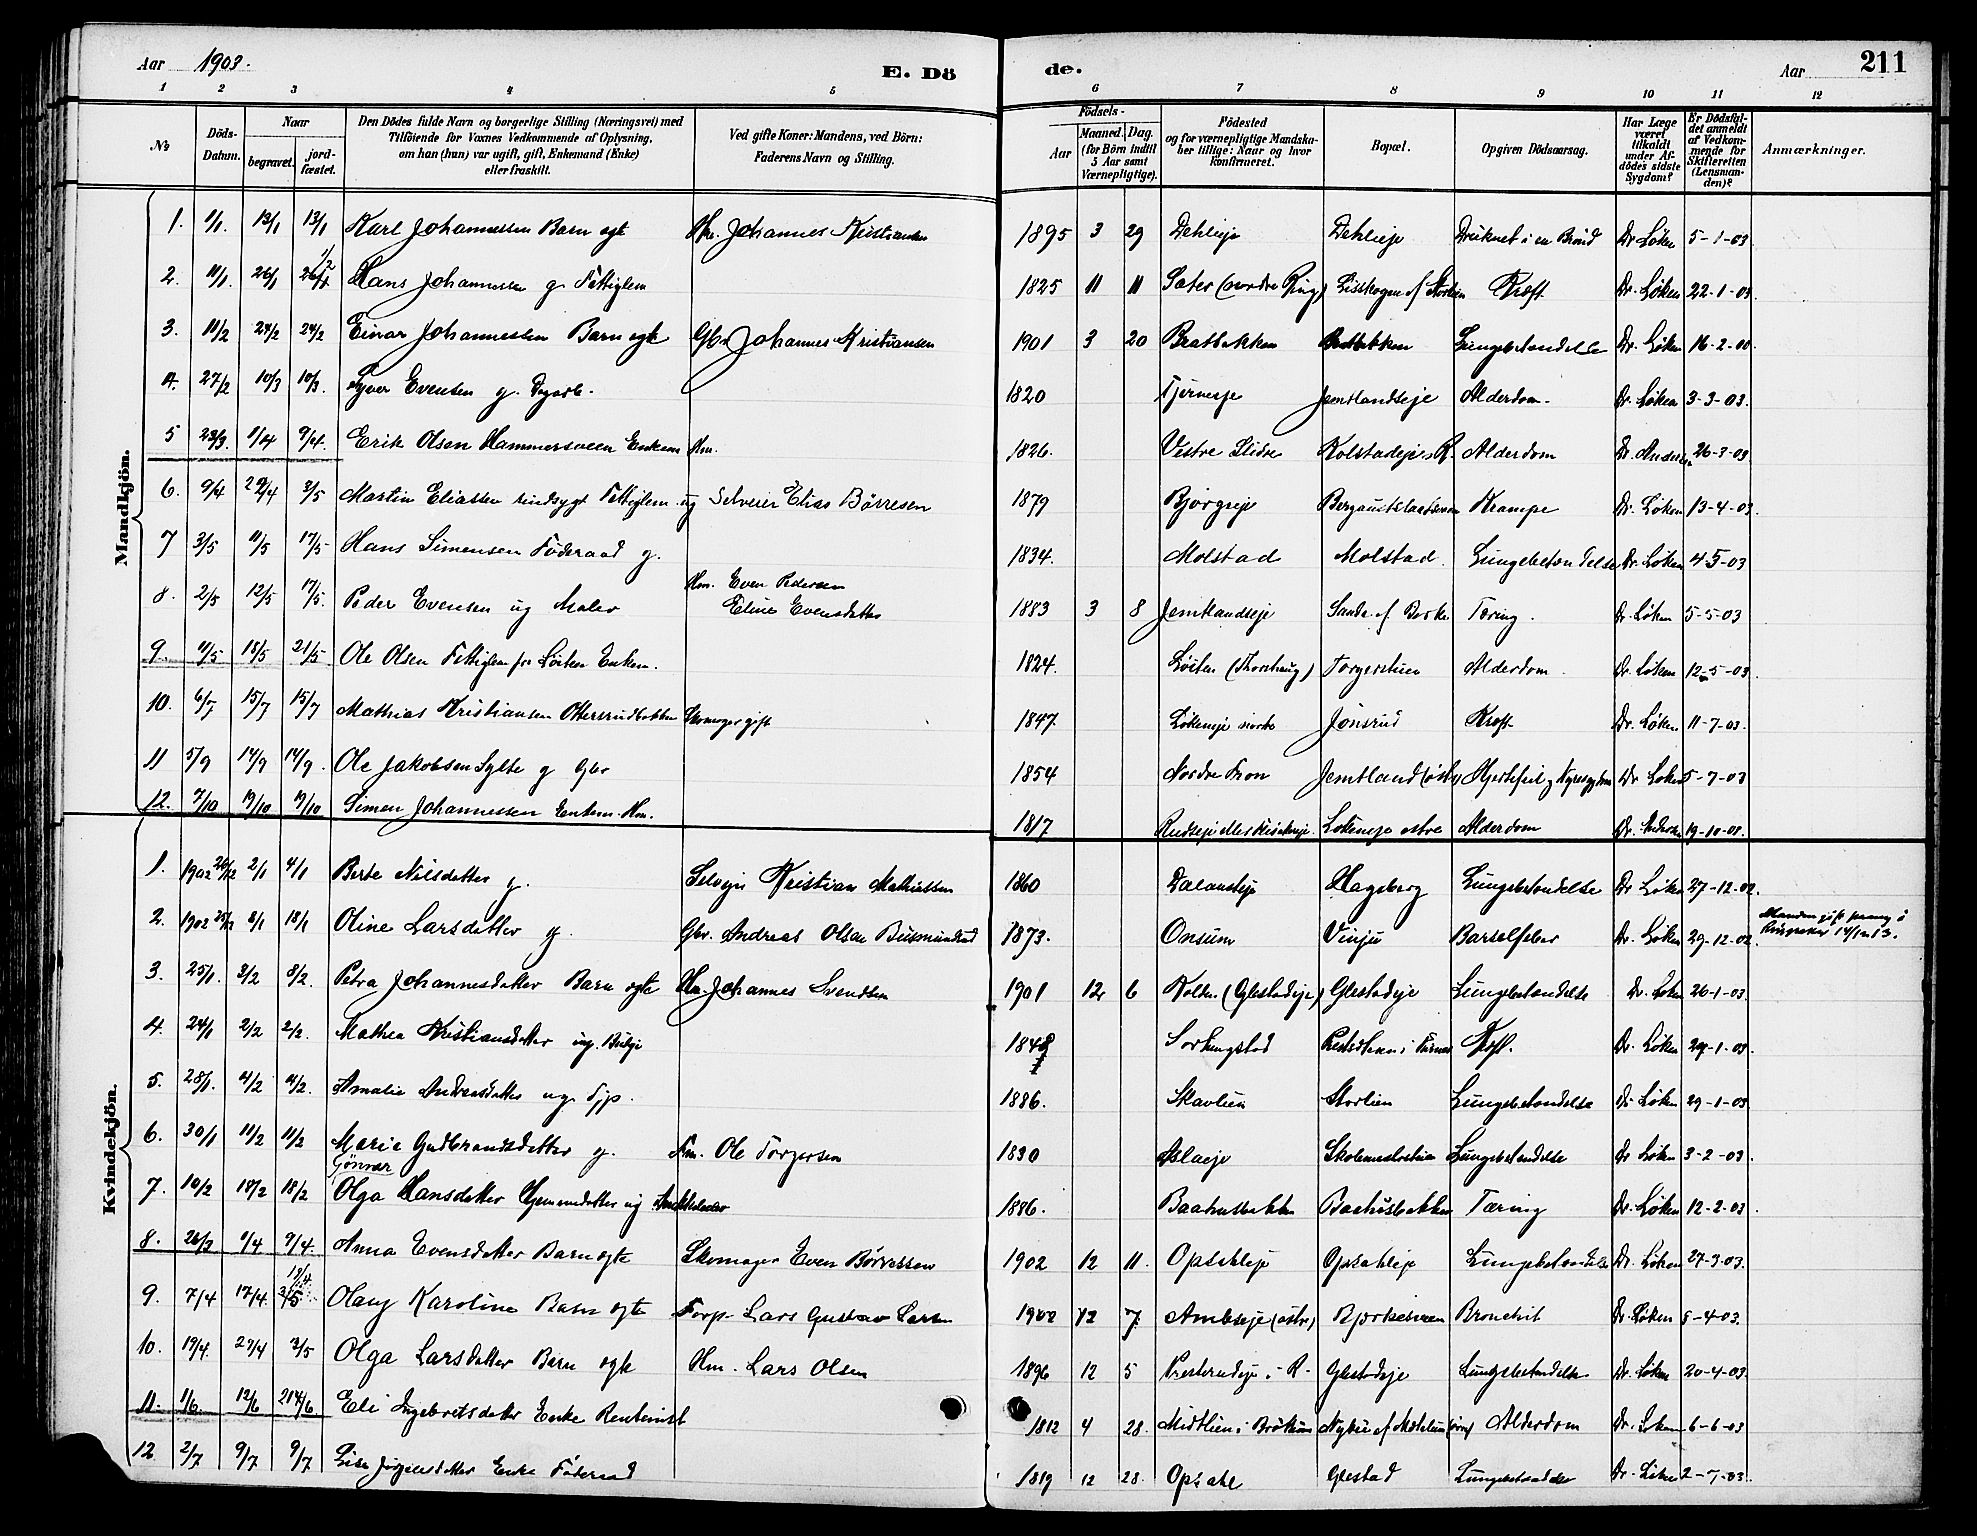 Aar 1903. E. Dö de. Aar 211
1 2 3 4 5 6 7 8 9 10 11 12
№ Döds-Datum. Naar begravet. jordfæstet. Den Dödes fulde Navn og borgerlige Stilling (Næringsvei) med Tilföiende for Voxnes Vedkommende af Oplysning, om han (hun) var ugift, gift, Enkemand (Enke) eller fraskilt. Ved gifte Koner: Mandens, ved Börn: Faderens Navn og Stilling. Födsels- Aar Maaned. Dag. (for Börn indtil 5 Aar samt Værnepligtige). Födested og for værnepligtige Mandskaber tillige: Naar og hvor konfirmeret. Bopæl. Opgiven Dödsaarsag. Har Læge været tilkaldt under Afdödes sidste Sygdom? Er Dödsfaldet anmeldt af Vedkommende for Skifteretten (Lensmanden)? Anmærkninger.
Mandkjön.
1. 1/1. 13/1 13/1 Karl Johannessen Barn egte Hm. Johannes Kristiansen 1895 3 29 Dehlieje Dehlieje Druknet i en Brönd Dr. Løken 5-1-03
2. 11/1. 26/1 1/2 26/1 Hans Johannessen g. Fattiglem 1825 11 11 Sater (nordre Ring) Kræft Dr. Løken 22-1-03
3. 11/2 24/2 24/2 Einar Johannessen Barn egte Gbr. Johannes Kristiansen 1901 3 20 Bratbakken Bratbakken Lungebetændelse Dr. Løken 16-2-
4. 27/2 10/3 10/3. Syver Evensen g. 1820 Jemtlandseje Alderdom. Dr. Løken 3-3-03.
5 23/3. 1/4 9/4. Erik Olsen Hammersveen Enkem Hm. 1826. Vestre Slidre Kolstadeje R. Alderdom Dr. Andersen 26-3-03
6. 9/4 29/4 3/5 Martin Eliassen sindsygt Fattiglem. ug Selveier Elias Börresen 1879 Bjørgeje Krampe Dr. Løken 13-4-03.
7 3/5 11/5 17/5 Hans Simensen Föderaad g. 1834. Molstad Molstad. Lungebetændelse Dr. Løken 4-5-03
8. 2/5 12/5 17/5. Peder Evensen ug Maler Hm. Even Pedersen Eline Evensdatter 1883 3 8 Jemtlandseje Sande af Berke Tæring. Dr. Løken 5-5-03
9. 11/5 18/5 21/5. Ole Olsen Fattiglem fra Löiten Enkem. 1824. Löiten (Thorshaug) Torgerstuen Alderdom. Dr. Løken 12-5-03
10. 6/7 15/7 15/7 Mathias Kristiansen Ottersrudbakken Skomager gift 1847. Løkeneje norke Jönsrud Kræft. Dr. Løken 11-7-03.
11 5/9 14/9 14/9. Ole Jakobsen Sylte g Gbr 1854 Nordre Fron Jemtland (østr) Hjertefeil og Nyresygdom Dr Løken 5-7-03
12. 7/10 19/10 19/10 Simen Johannessen Enkem. Hm. 1817 Løkeneje østre Alderdom Dr. Andersen 19-10-03.
Kvindekjön.
1. 1902 26/12 2/1 4/1 Berte Nilsdatter g. Selvejer Kristian Mathiessen 1860 Hagsberg Lungebetændelse Dr Løken 27-12-02.
2. 1902 25/12 8/1 18/1 Oline Larsdatter g. Gbr. Andreas Olsen Busmundrud 1873. Onsum Vinju Barselfeber Dr. Løken 29-12-02. Manden gift paany i Ringsaker 14/12 13.
3. 25/1. 3/2 8/2. Petra Johannesdatter Barn egte Hm. Johannes Svendsen 1901 12 6 Kolden (Glestadeje) Glestadeje Lungebetændelse Dr. Løken 26-1-03
4. 24/1 2/2 2/2. Mathea Kristiansdatter ug. Budeje Kræft. Dr. Løken 29-1-03
5. 28/1. 4/2 4/2. Amalie Andreasdatter ug. Tjp. 1886. Skavlien Storlien Lungebetændelse Dr Løken 29-1-03
6. 30/1 11/2 11/2 Marie Gudbrandsdatter g. Fm. Ole Torgersen 1830 Aslaeje Skolemesterstuen Lungebetændelse Dr Løken 3-2-03
7. 10/2 18/2 18/2 Gönvar Olga Hansdatter Hjemmedatter ug 1886. Baahusbakken Baahusbakken Tæring Dr. Løken 12-2-03
8. 26/3 1/4 9/4. Anna Evensdatter Barn egte Skomager Even Börressen 1902 12 11. Opsahleje Opsahleje Lungebetændelse Dr. Løken 27-3-03.
9. 7/4 17/4. 19/4 3/5 Olaug Karoline Barn egte Forp. Lars Gustav Larsen 1902 12 7. Ambseje (østre) Bjorkesveen Bronchit Dr. Løken 8-4-03.
10. 19/4. 27/4 3/5 Olga Larsdatter Barn egte Hm. Lars Olsen 1896 12 5 Presterudeje i R. Glestadeje Lungebetændelse Dr. Løken 20-4-03
11. 1/6. 12/6 14/6 Eli Ingebretsdatter Enke Rentenist 1812 4 28. Midtlien i Bröttum Alderdom Dr. Løken 6-6-03
12. 2/7 9/7 9/7 Lise Jörgensdatter Enke Föderaad 1819 12 28. Opsahl Glestad Lungebetændelse Dr. Løken 2-7-03.